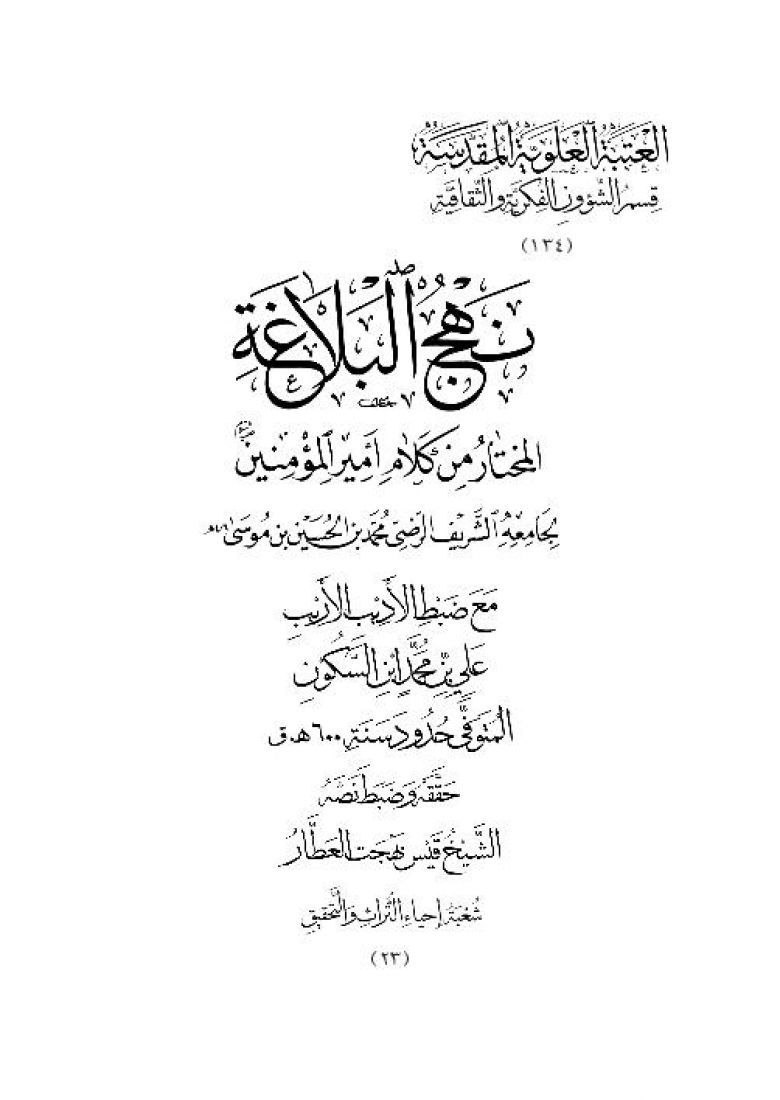 العَتَبَةُ العَلَوِيَّةُ المُقَدَّسَةُ
قِسمُ الشُّؤُونِ الفِكرِيَّةِ وَالثَّقَافِيَّةِ
(١٣٤)
نَهْجُ الْبَلَاغَةِ
المُختَارُ مِن كَلَامِ أَمِيرِ الْمُؤْمِنِينَ
لِجَامِعِهِ الشَّرِيفِ الرَّضِيِّ مُحَمَّدِ بنِ الحُسَيْنِ بنِ مُوسَىٰ
مَعَ ضَبْطِ الأَدِيْبِ الأَرِيْبِ
عَلِيِّ بنِ مُحَمَّدِ ابْنِ السَّكُونِ
المُتَوَفَّى حُدُودَ سَنَةِ ٦٠٠ هـ.ق
حَقَّقَهُ وَضَبَطَ نَصَّهُ
الشَّيْخُ قَيْس بَهْجَت العَطَّارُ
شُعْبَةُ إِحيَاءِ التُّرَاثِ وَالتَّحقِيقِ
(٢٣)